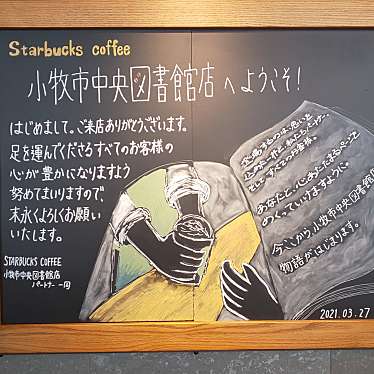 Starbucks coffee
小牧市中央図書館店へようこそ!
はじめまして。ご来店ありがとうございます。
足を運んでくださるすべてのお客様の
心が豊かになりますよう
努めてまいりますので、
末永くよろしくお願い
いたします。
STARBUCKS COFFEE
小牧市中央図書館店
パートナー 一同
あなたと、心あたたまるページを
めくっていけますように。
今ここから小牧市中央図書館
物語がはじまります。
2021.03.27